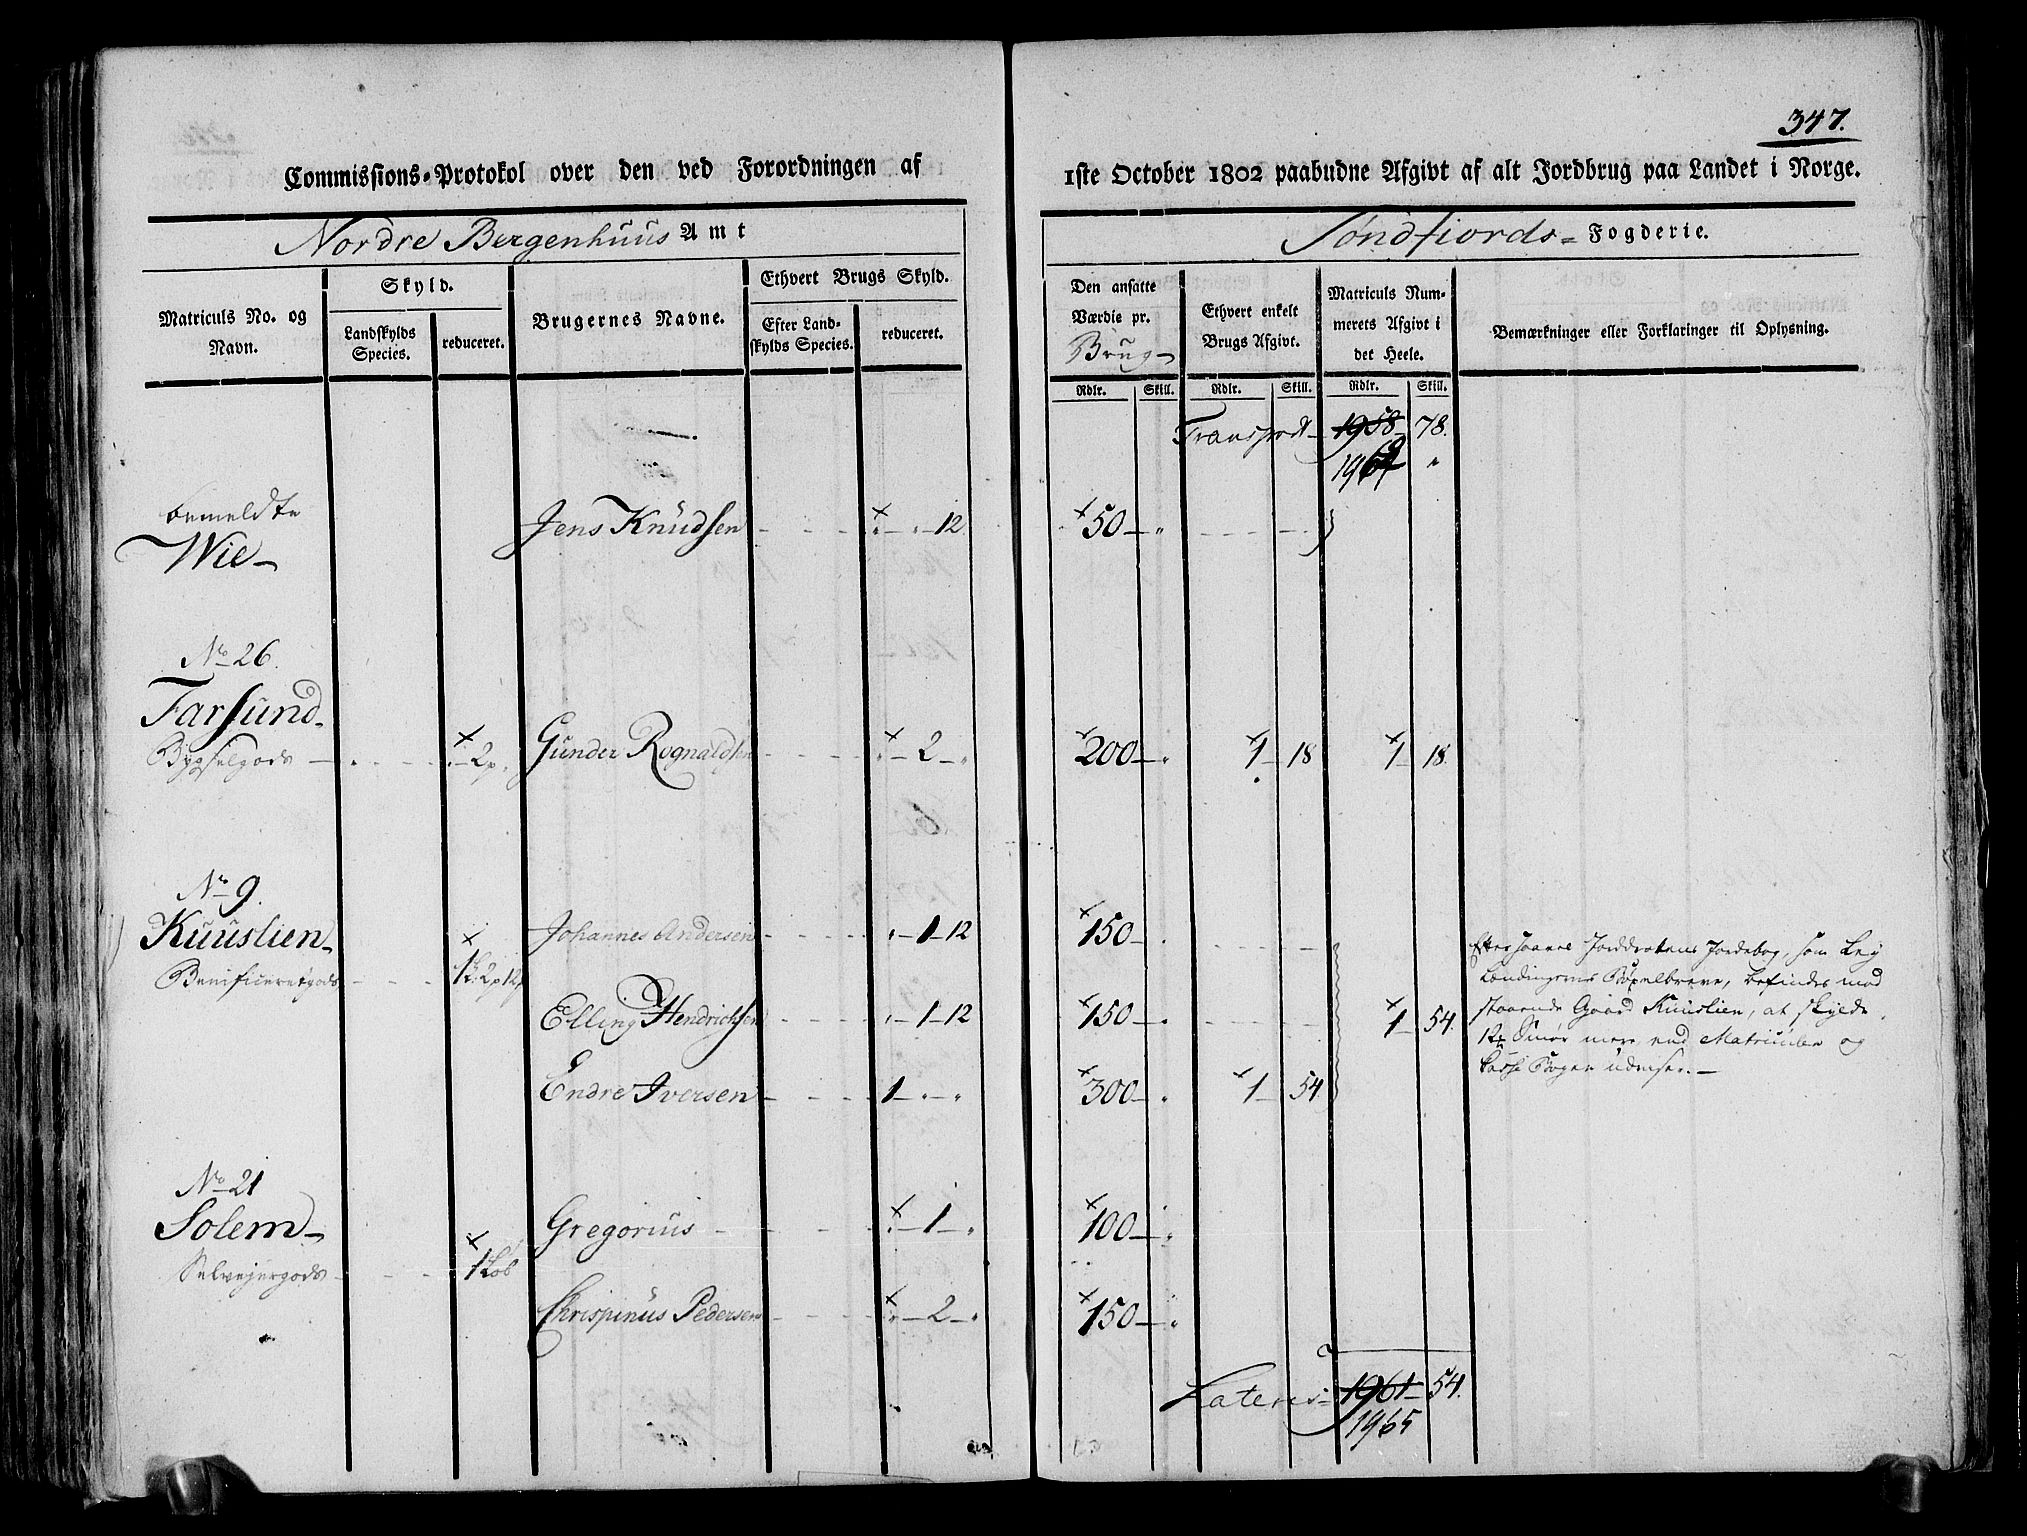 347.
Commissions-Protokol over den ved Forordningen af 1ste October 1802 paabudne Afgivt af alt Jordbrug paa Landet i Norge.
Nordre Bergenhuus Amt
Søndfiords- Fogderie.
Matriculs No. og Navn.
Skyld.
Landskylds Species.
reduceret.
Brugernes Navne.
Ethvert Brugs Skyld.
Efter Landskylds Species.
reduceret.
Den ansatte Værdie pr. Brug
Ethvert enkelt Brugs Afgivt.
Matriculs Nummerets Afgivt i det Heele.
Bemærkninger eller Forklaringer til Oplysning.
Rdlr. Skill. Rdlr. Skill. Rdlr. Skill.
Transport 1958 78.
196
bemeldte
Wie Jens Knudsen 12 50
No 26.
Farsund
Bygselgods 2p Gunder Rognaldsen 2 200 1 18 1 18.
No 9.
Kuuslien Johannes Andersen 1 12 150
Benificeretgods 1L 2p 12
Elling Hendrichsen 1 12 150 1 54.
Endre Iversen 1 300 1 54
Jorddrottens Jordebog, som
Lændingernes Bøxelbreve, befindes
staaende Gaard Kuuslien, at skylde
Smør mere end Matriculen og
Bøger udviser.
No 21
Solem Gregorius 1 100
Selvejergods 1 Løb
Chrispinus Pedersen 2 150
Lateris 1961 54.
1965